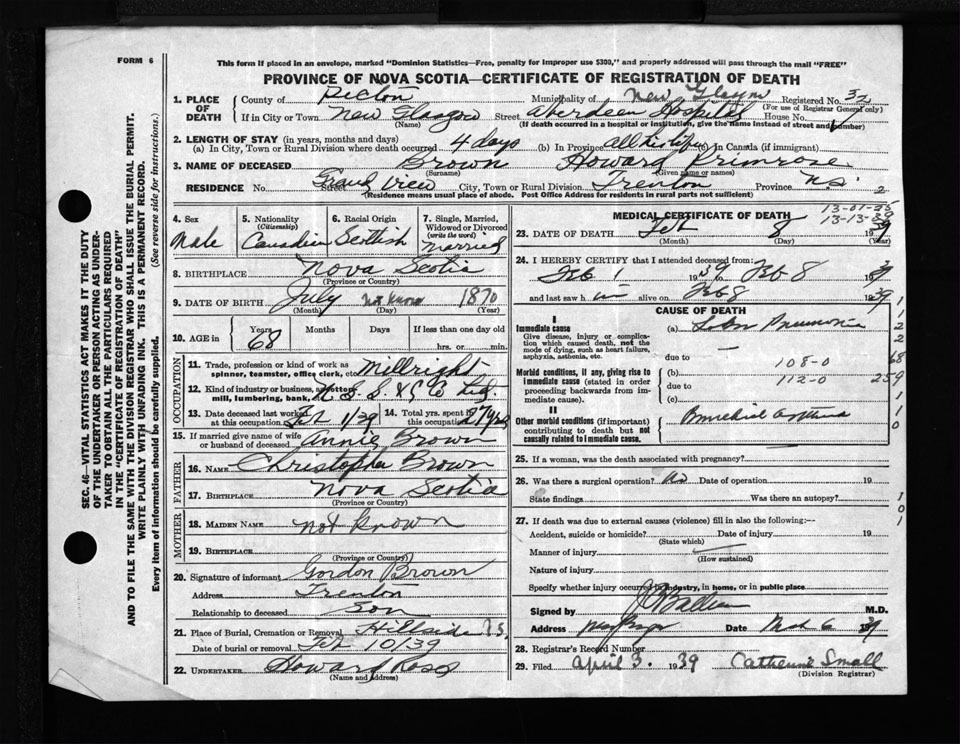 FORM 6
This form if placed in an envelope, marked "Dominion Statistics—Free, penalty for improper use $300," and properly addressed will pass through the mail "FREE"
PROVINCE OF NOVA SCOTIA—CERTIFICATE OF REGISTRATION OF DEATH
SEC. 46—VITAL STATISTICS ACT MAKES IT THE DUTY
OF THE UNDERTAKER OR PERSON ACTING AS UNDER-
TAKER TO OBTAIN ALL THE PARTICULARS REQUIRED
IN THE "CERTIFICATE OF REGISTRATION OF DEATH"
AND TO FILE THE SAME WITH THE DIVISION REGISTRAR WHO SHALL ISSUE THE BURIAL PERMIT.
WRITE PLAINLY WITH UNFADING INK. THIS IS A PERMANENT RECORD.
Every item of information should be carefully supplied. (See reverse side for instructions.)
1. PLACE OF DEATH
County of Pictou Municipality of New Glasgow Registered No. 37
(For use of Registrar General only)
If in City or Town New Glasgow Street Aberdeen Hospital House No.
(Name) (If death occurred in a hospital or institution, give the name instead of street and number)
2. LENGTH OF STAY (in years, months and days)
(a) In City, Town or Rural Division where death occurred 4 days (b) In Province all his life (c) In Canada (if immigrant)
3. NAME OF DECEASED Brown Howard Primrose
(Surname) (Given name or names)
RESIDENCE No. Street Grand View City, Town or Rural Division Trenton Province N.S. 2
(Residence means usual place of abode. Post Office Address for residents in rural parts not sufficient)
4. Sex Male
5. Nationality (Citizenship) Canadian
6. Racial Origin Scottish
7. Single, Married, Widowed or Divorced (write the word) Married
8. BIRTHPLACE Nova Scotia
(Province or Country)
9. DATE OF BIRTH July not known 1870
(Month) (Day) (Year)
10. AGE in Years 68 Months Days If less than one day old
hrs. or min.
OCCUPATION
11. Trade, profession or kind of work as spinner, teamster, office clerk, etc. Millright
12. Kind of industry or business, as cotton mill, lumbering, bank, N.S. S & C Co Ltd.
13. Date deceased last worked at this occupation Feb 1/39 14. Total yrs. spent in 27 yrs
15. If married give name of wife or husband of deceased Annie Brown
FATHER
16. NAME Christopher Brown
17. BIRTHPLACE Nova Scotia
(Province or Country)
MOTHER
18. MAIDEN NAME not known
19. BIRTHPLACE
(Province or Country)
20. Signature of informant Gordon Brown
Address Trenton
Relationship to deceased Son
21. Place of Burial, Cremation or Removal Hillside N.S.
Date of burial or removal Feb 10/39
22. UNDERTAKER Howard Ross
(Name and Address)
MEDICAL CERTIFICATE OF DEATH
13-01-25
13-13-39
23. DATE OF DEATH Feb 8 1939
(Month) (Day) (Year)
24. I HEREBY CERTIFY that I attended deceased from:
Feb 1 1939 to Feb 8 1939
and last saw him alive on Feb 8 1939
CAUSE OF DEATH
I
Immediate cause (a) Lobar Pneumonia
Give disease, injury or complication which caused death, not the mode of dying, such as heart failure, asphyxia, asthenia, etc.
due to
Morbid conditions, if any, giving rise to immediate cause (stated in order proceeding backwards from immediate cause).
(b) 108-0
due to 112-0
(c)
II
Other morbid conditions (if important) contributing to death but not causally related to immediate cause.
Bronchial Asthma
1
2
2
68
259
1
1
0
25. If a woman, was the death associated with pregnancy?
26. Was there a surgical operation? No Date of operation 19
State findings Was there an autopsy?
101
27. If death was due to external causes (violence) fill in also the following:—
Accident, suicide or homicide? Date of injury 19
(State which)
Manner of injury
(How sustained)
Nature of injury
Specify whether injury occurred in industry, in home, or in public place
Signed by M.D.
Address Date 6 1939
28. Registrar's Record Number
29. Filed April 3. 1939 Catherine Small
(Division Registrar)